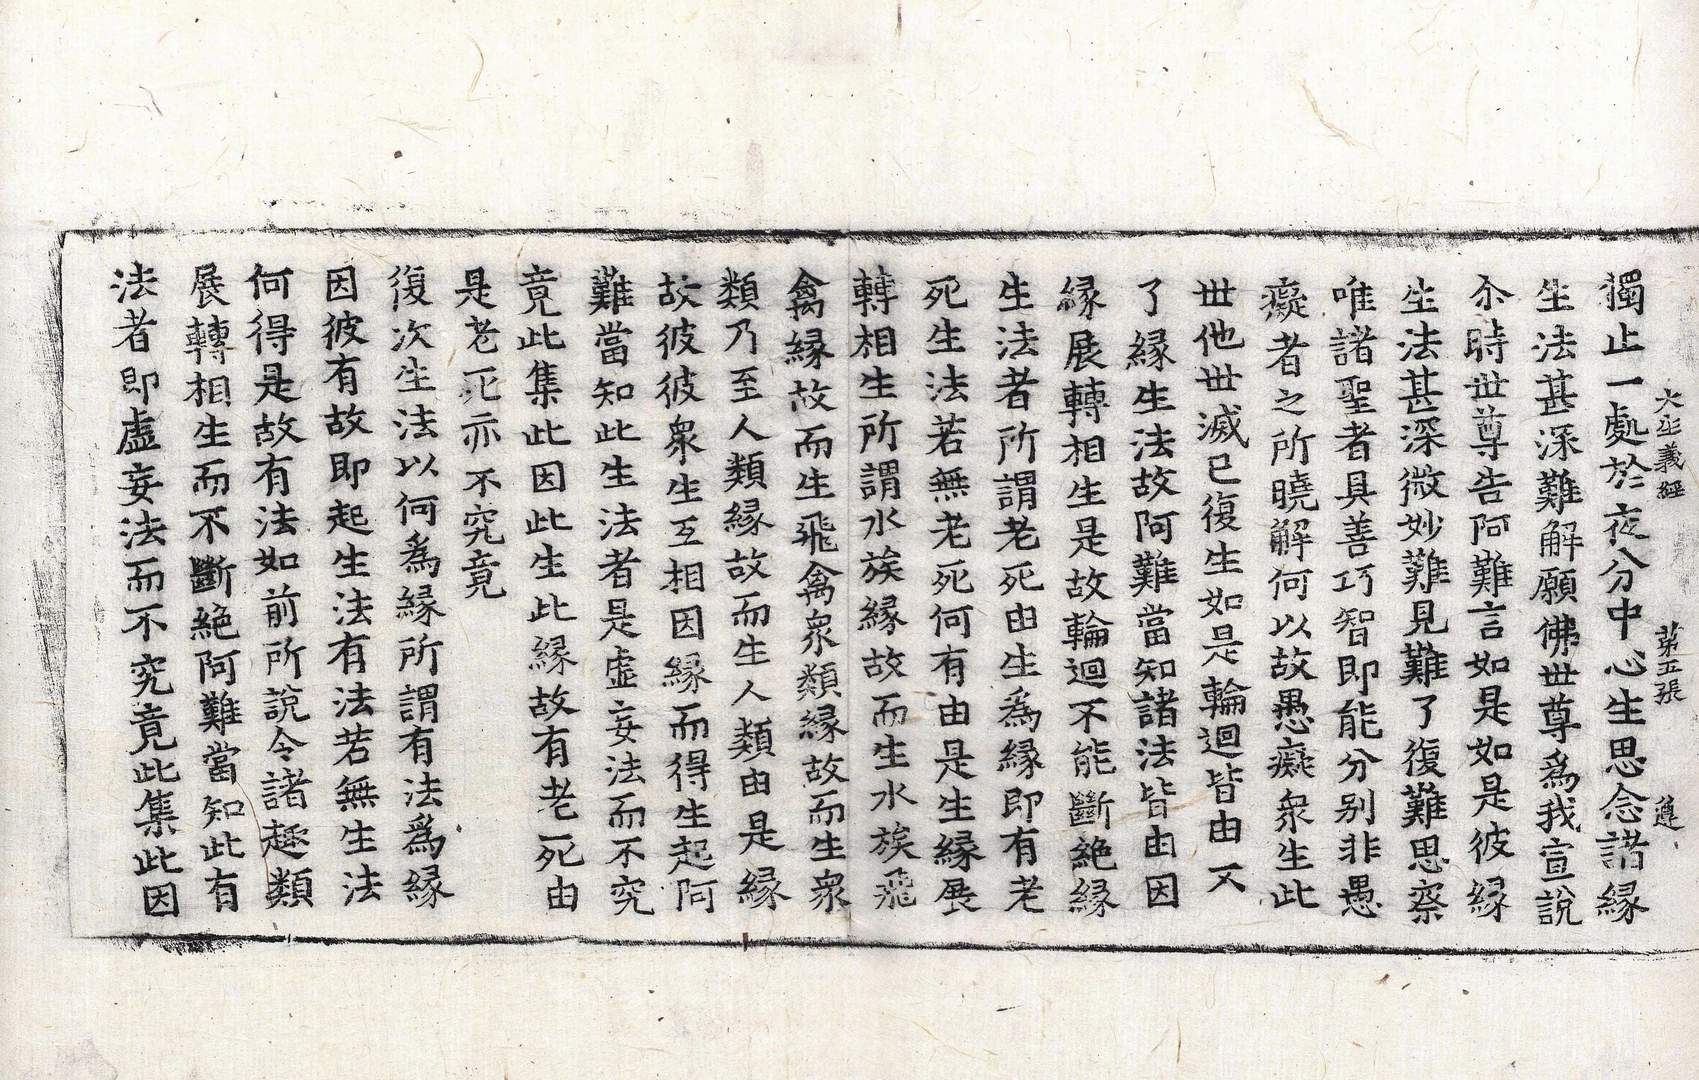 大生義經　第五張　遵
獨止一處於夜分中心生思念諸緣
生法甚深難解願佛世尊為我宣說
尒時世尊告阿難言如是如是彼緣
生法甚深微妙難見難了復難思察
唯諸聖者具善巧智即能分别非愚
癡者之所曉解何以故愚癡衆生此
世他世滅已復生如是輪迴皆由不
了緣生法故阿難當知諸法皆由因
緣展轉相生是故輪迴不能斷絶緣
生法者所謂老死由生為緣即有老
死生法若無老死何有由是生緣展
轉相生所謂水族緣故而生水族飛
禽緣故而生飛禽衆類緣故而生衆
類乃至人類緣故而生人類由是緣
故彼彼衆生互相因緣而得生起阿
難當知此生法者是虛妄法而不究
竟此集此因此生此緣故有老死由
是老死亦不究竟
復次生法以何為緣所謂有法為緣
因彼有故即起生法有法若無生法
何得是故有法如前所說令諸趣類
展轉相生而不斷絶阿難當知此有
法者即虛妄法而不究竟此集此因